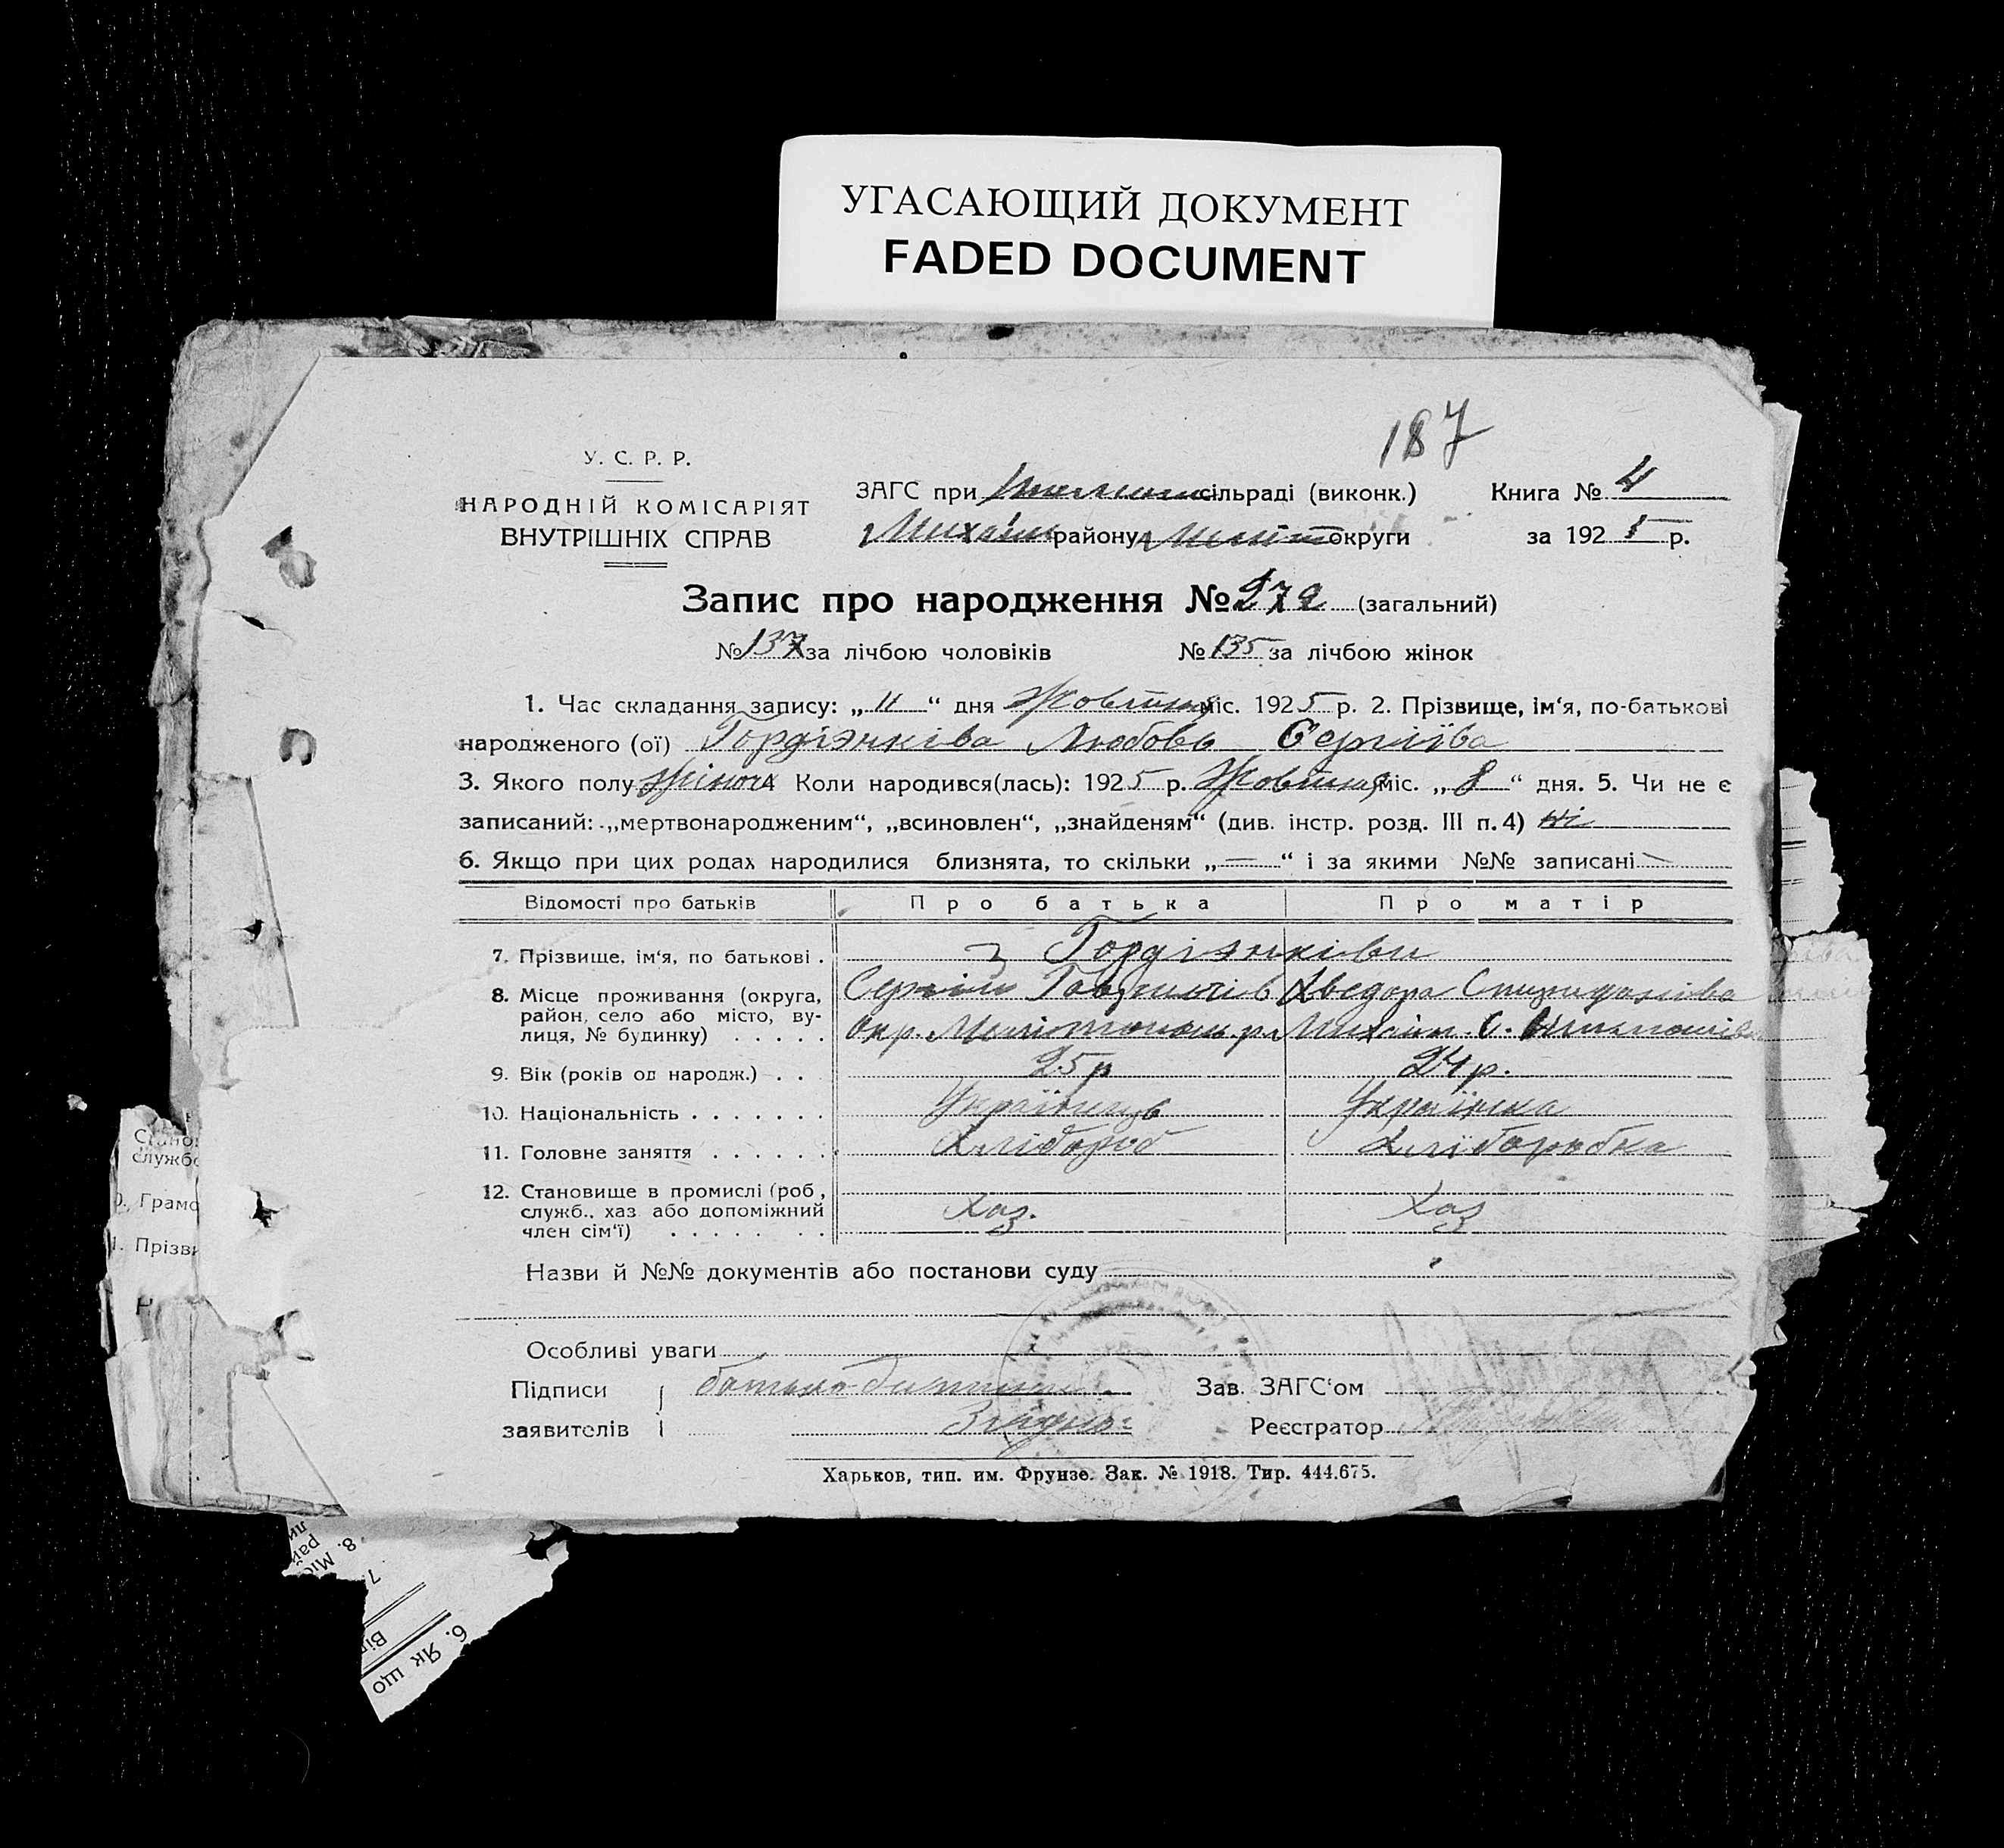 УГАСАЮЩИЙ ДОКУМЕНТ
FADED DOCUMENT
187
У. С. Р. Р.
НАРОДНІЙ КОМІСАРІЯТ
ВНУТРІШНІХ СПРАВ
ЗАГС при сільраді (виконк.)
Михайл району Меліт округи
Книга № 4
за 1925 р.
Запис про народження № 272 (загальний)
№ 137 за лічбою чоловіків № 135 за лічбою жінок
1. Час складання запису: „11“ дня Жовтня міс. 1925 р. 2. Прізвище, ім‘я, по-батькові
народженого (ої) Гордієнкова Любовь Сергіїва
3. Якого полу жіноч 4 Коли народився(лась): 1925 р. Жовтня міс. „8“ дня. 5. Чи не є
записаний: „мертвонародженим“, „всиновлен“, „знайденям“ (див. інстр. розд. III п. 4) Ні
6. Якщо при цих родах народилися близнята, то скільки „—“ і за якими №№ записані
Відомості про батьків Про батька Про матір
7. Прізвище, ім‘я, по батькові . Гордієнківи
Сергій Гаврилів Хведора Спиридонівна
8. Місце проживання (округа,
район, село або місто, ву-
лиця, № будинку) . . . . . Окр. Мелітопольськ. р. Михайл. С.
9. Вік (років од народж.) . . . 25 р 24 р.
10. Національність . . . . . . . Українець Українка
11. Головне заняття . . . . . . Хлібороб Хліборобка
12. Становище в промислі (роб.,
служб., хаз. або допоміжний
член сім‘ї) . . . . . . . Хаз. Хаз
Назви й №№ документів або постанови суду
Особливі уваги
Підписи батько дитини Зав. ЗАГС‘ом
заявителів Згідно: Реєстратор
Харьков, тип. им. Фрунзе. Зак. № 1918. Тир. 444.675.
службо
Грамо
Прізви
8. Міс
рай
ли
7.
Від
6. Як що